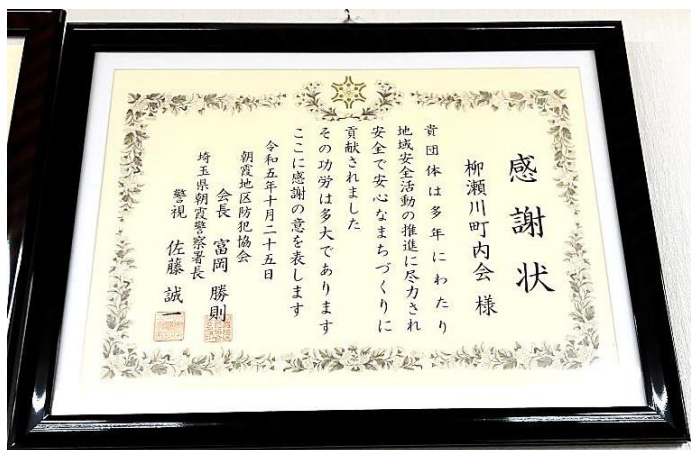 感謝状
柳瀬川町内会 様
貴団体は多年にわたり
地域安全活動の推進に尽力され
安全で安心なまちづくりに
貢献されました
その功労は多大であります
ここに感謝の意を表します
令和五年十月二十五日
朝霞地区防犯協会
会長 富岡 勝則
埼玉県朝霞警察署長
警視 佐藤 誠一